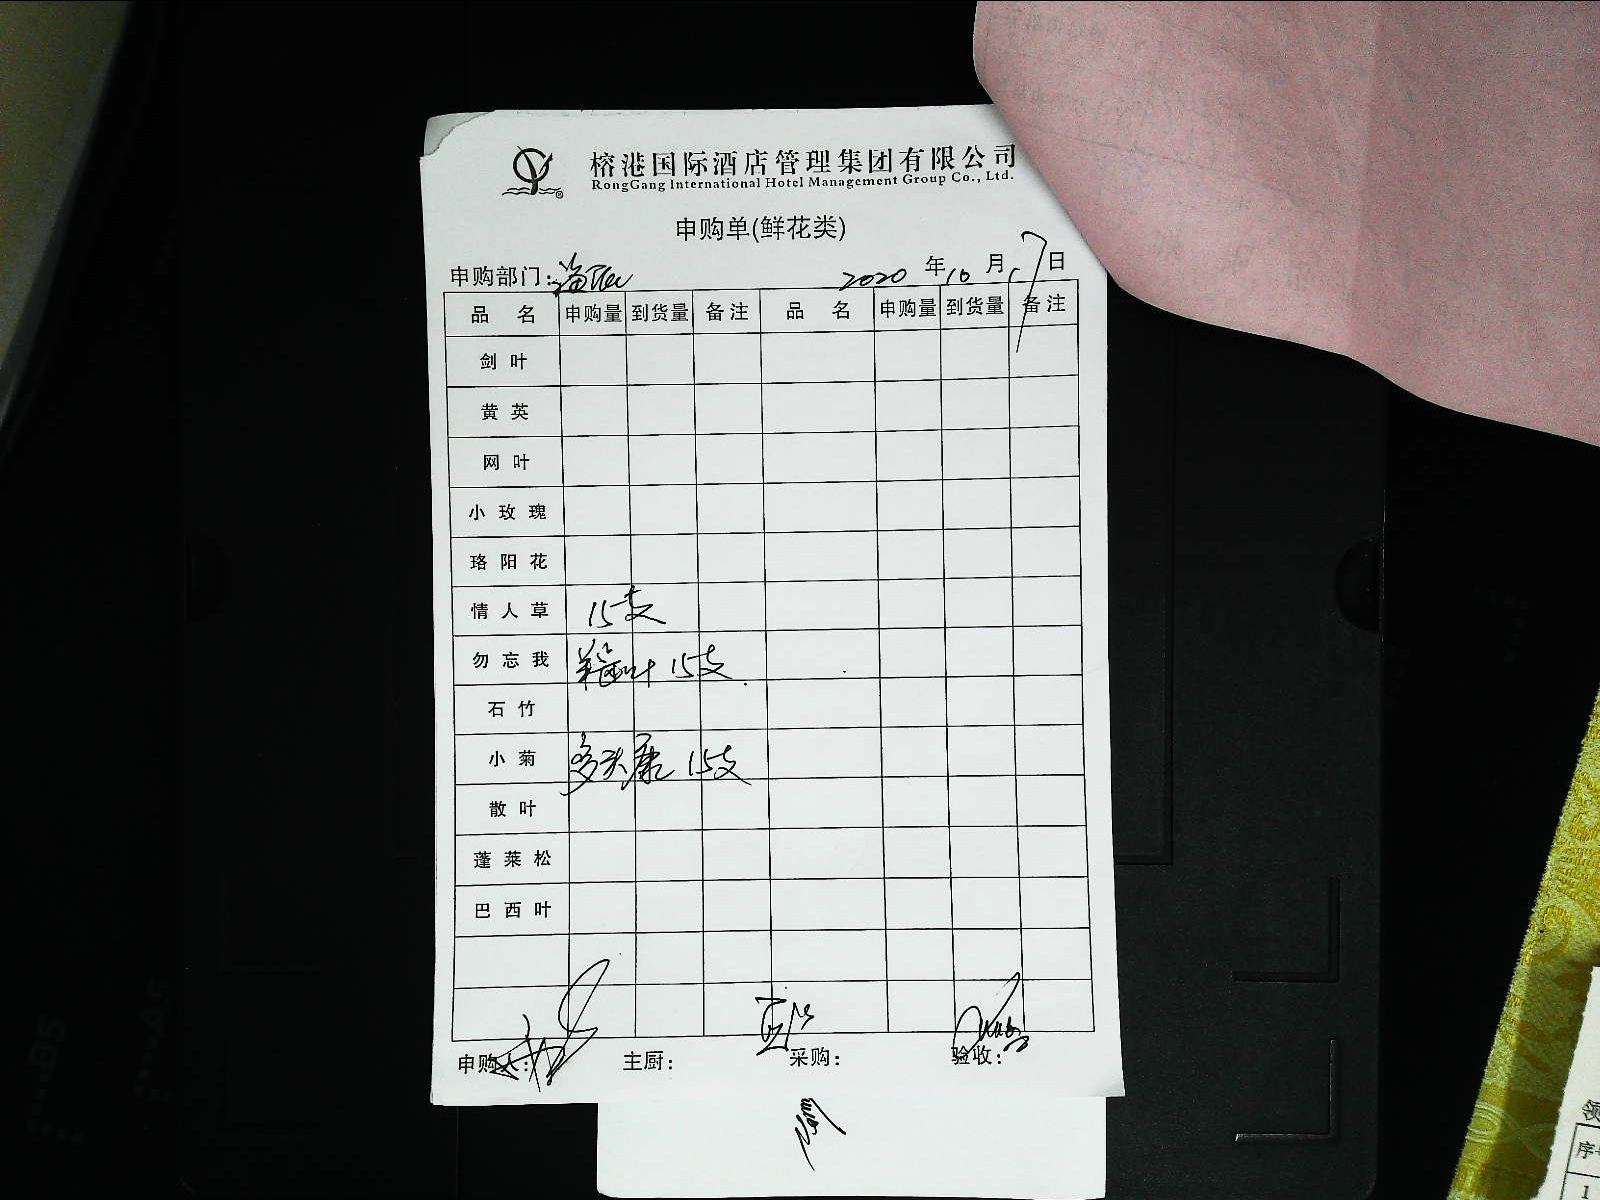 榕港国际酒店管理集团有限公司
RongGang International Hotel Management Group Co., Ltd.
申购单(鲜花类)
申购部门: 2020 年 10 月 17 日
品 名 申购量 到货量 备注 品 名 申购量 到货量 备注
剑叶
黄英
网叶
小玫瑰
珞阳花
情人草 15支
勿忘我 15支
石竹
小菊 多头康 15支
散叶
蓬莱松
巴西叶
申购人: 主厨: 采购: 验收:
领
序号
1